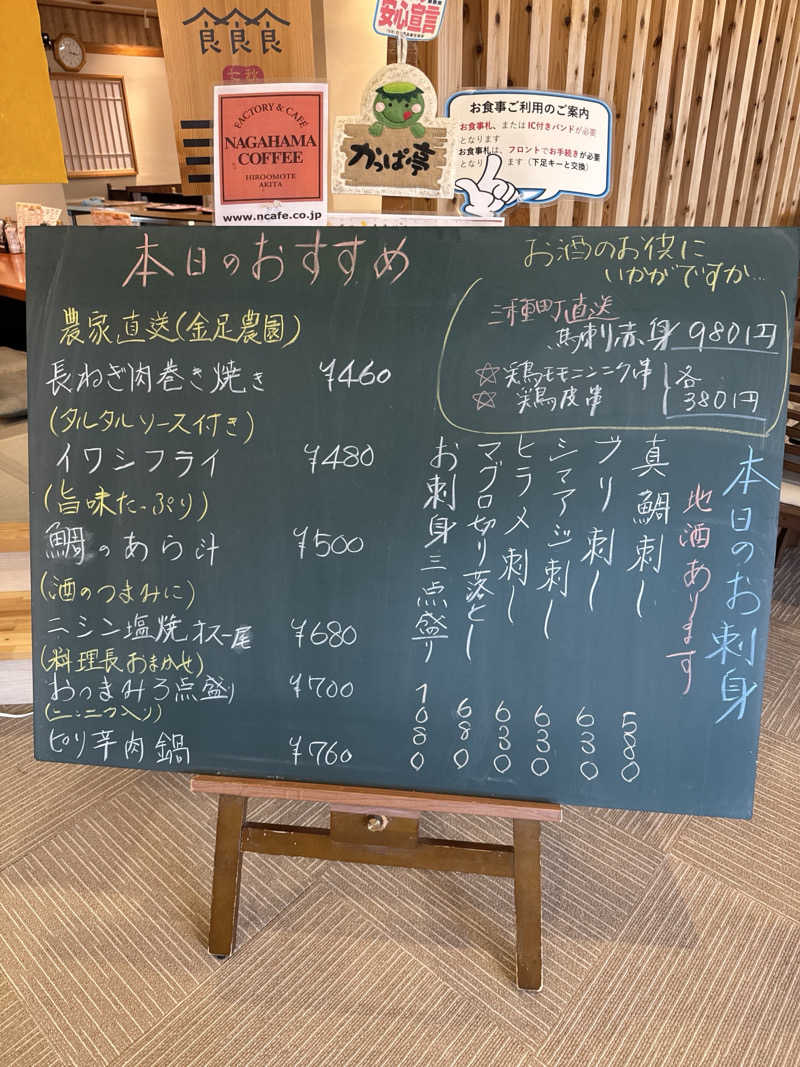 良食良
安心宣言
FACTORY & CAFE
NAGAHAMA
COFFEE
HIROOMOTE
AKITA
www.ncafe.co.jp
かっぱ亭
お食事ご利用のご案内
お食事札、またはIC付きバンドが必要
となります
お食事札は、フロントでお手続きが必要
となります(下足キーと交換)
本日のおすすめ
農家直送(金足農園)
長ねぎ肉巻き焼き ¥460
(タルタルソース付き)
イワシフライ ¥480
(旨味たっぷり)
鯛のあら汁 ¥500
(酒のつまみに)
ニシン塩焼オス一尾 ¥680
(料理長おまかせ)
おつまみ3点盛り ¥700
(ニンニク入り)
ピリ辛肉鍋 ¥760
お酒のお供に
いかがですか…
三種町直送
馬刺赤身 980円
☆鶏モモニンニク串
☆鶏皮串
各
380円
本日のお刺身
地酒あります
真鯛刺し 580
ブリ刺し 630
シマアジ刺し 630
ヒラメ刺し 630
マグロ切り落とし 680
お刺身三点盛り 1080